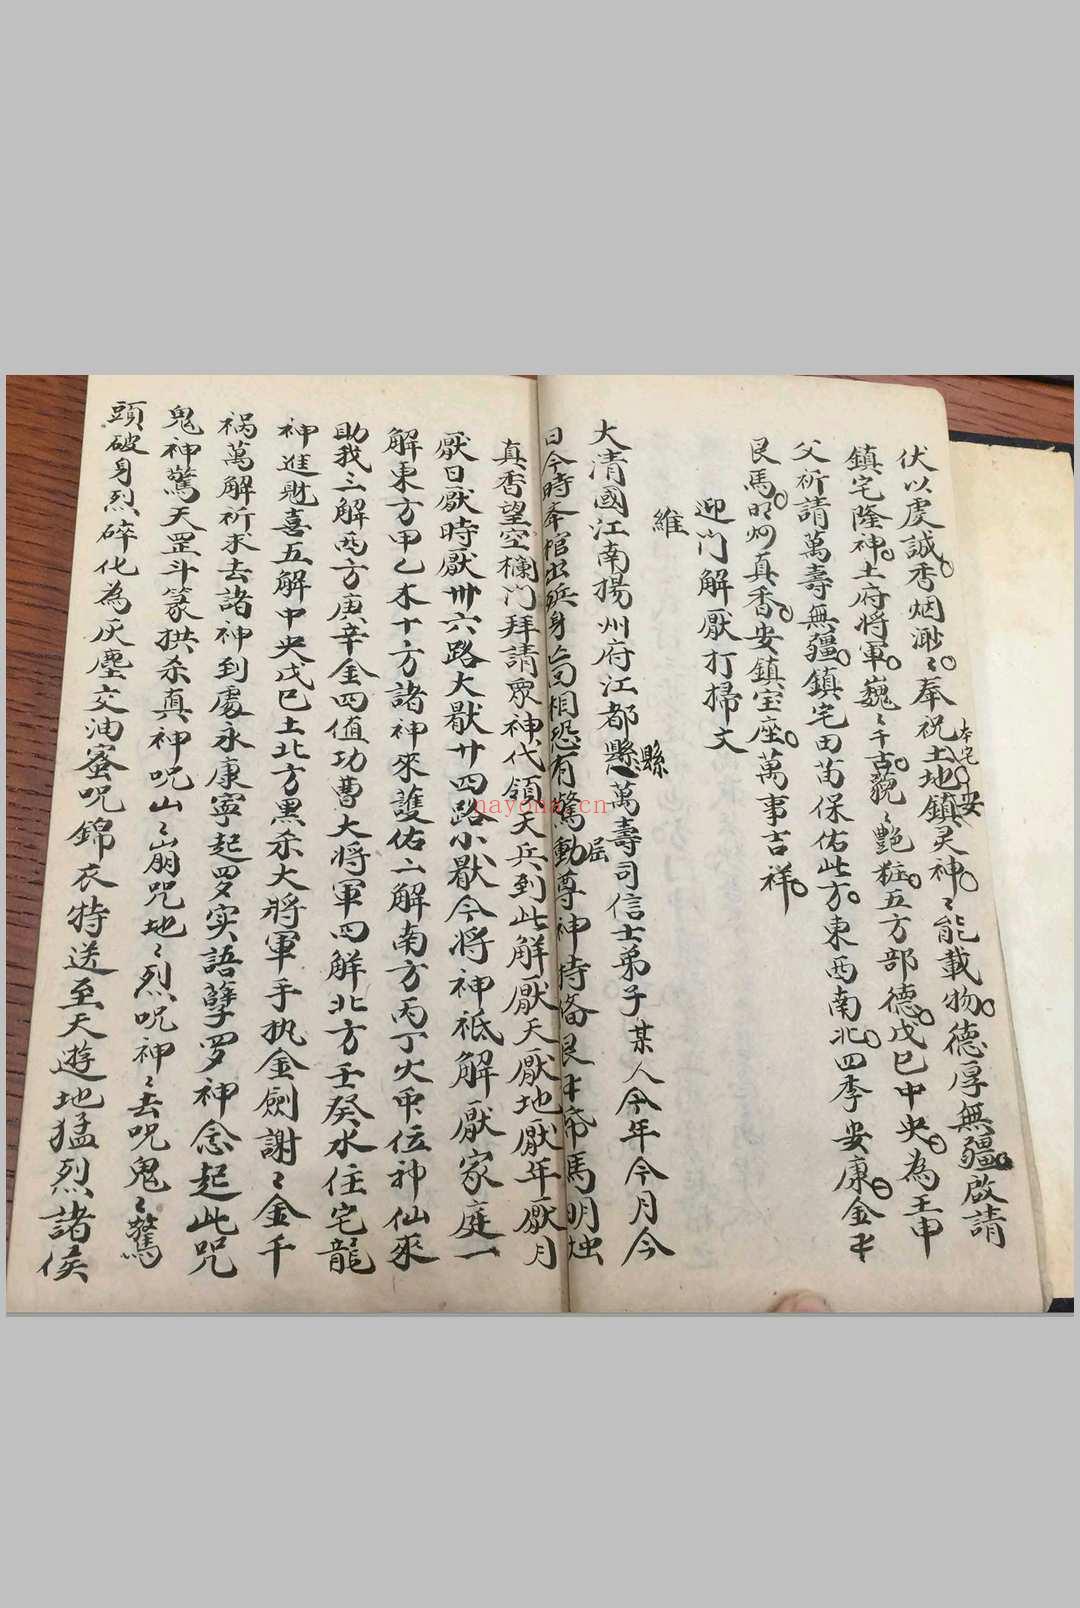 伏以虔誠香烟渺〻奉祝土地鎮灵神〻能載物德厚無疆啟請
本宅
安
鎮宅隆神土府將軍巍〻千古巍〻艷粧五方部德戊巳中央為王申
父祈請萬壽無疆鎮宅田苗保佑此方東西南北四季安康金
艮馬明炯真香安鎮宝座萬事吉祥
迎門解厭打掃文
維
大清國江南揚州府江都縣萬壽司信士弟子某人今年今月今
縣
屈
日今時 棺出 身 相恐有驚動尊神特备艮 馬明
真香望空欄門拜請眾神代領天兵到此解厭天厭地厭年厭月
厭日厭時厭卅六路大厭廿四路小厭今將神祗解厭家庭一
解東方甲乙木十方諸神來護佑二解南方丙丁火 位神仙來
助我三解西方庚辛金四值功曹大將軍四解北方壬癸水住宅龍
神進財喜五解中央戊巳土北方黑杀大將軍手执金劍謝〻金千
祸萬解祈求去諸神到處永康寧起罗实語孽罗神念起此咒
鬼神驚天罡斗篆拱杀真神呪山〻崩咒地〻烈呪神〻去呪鬼〻驚
頭破身烈碎化為灰塵交油蜜呪錦衣特送至天遊地猛烈諸侯
nayona.cn